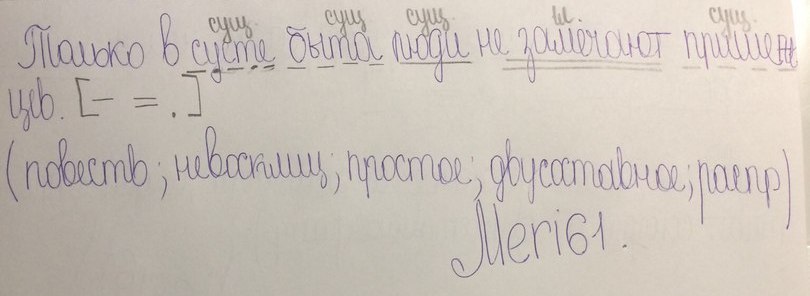 сущ. сущ сущ. гл. сущ.
Только в суете быта люди не замечают пришель
цев. [– = .]
(повеств; невосклиц; простое; двусоставное; распр)
Meri61.